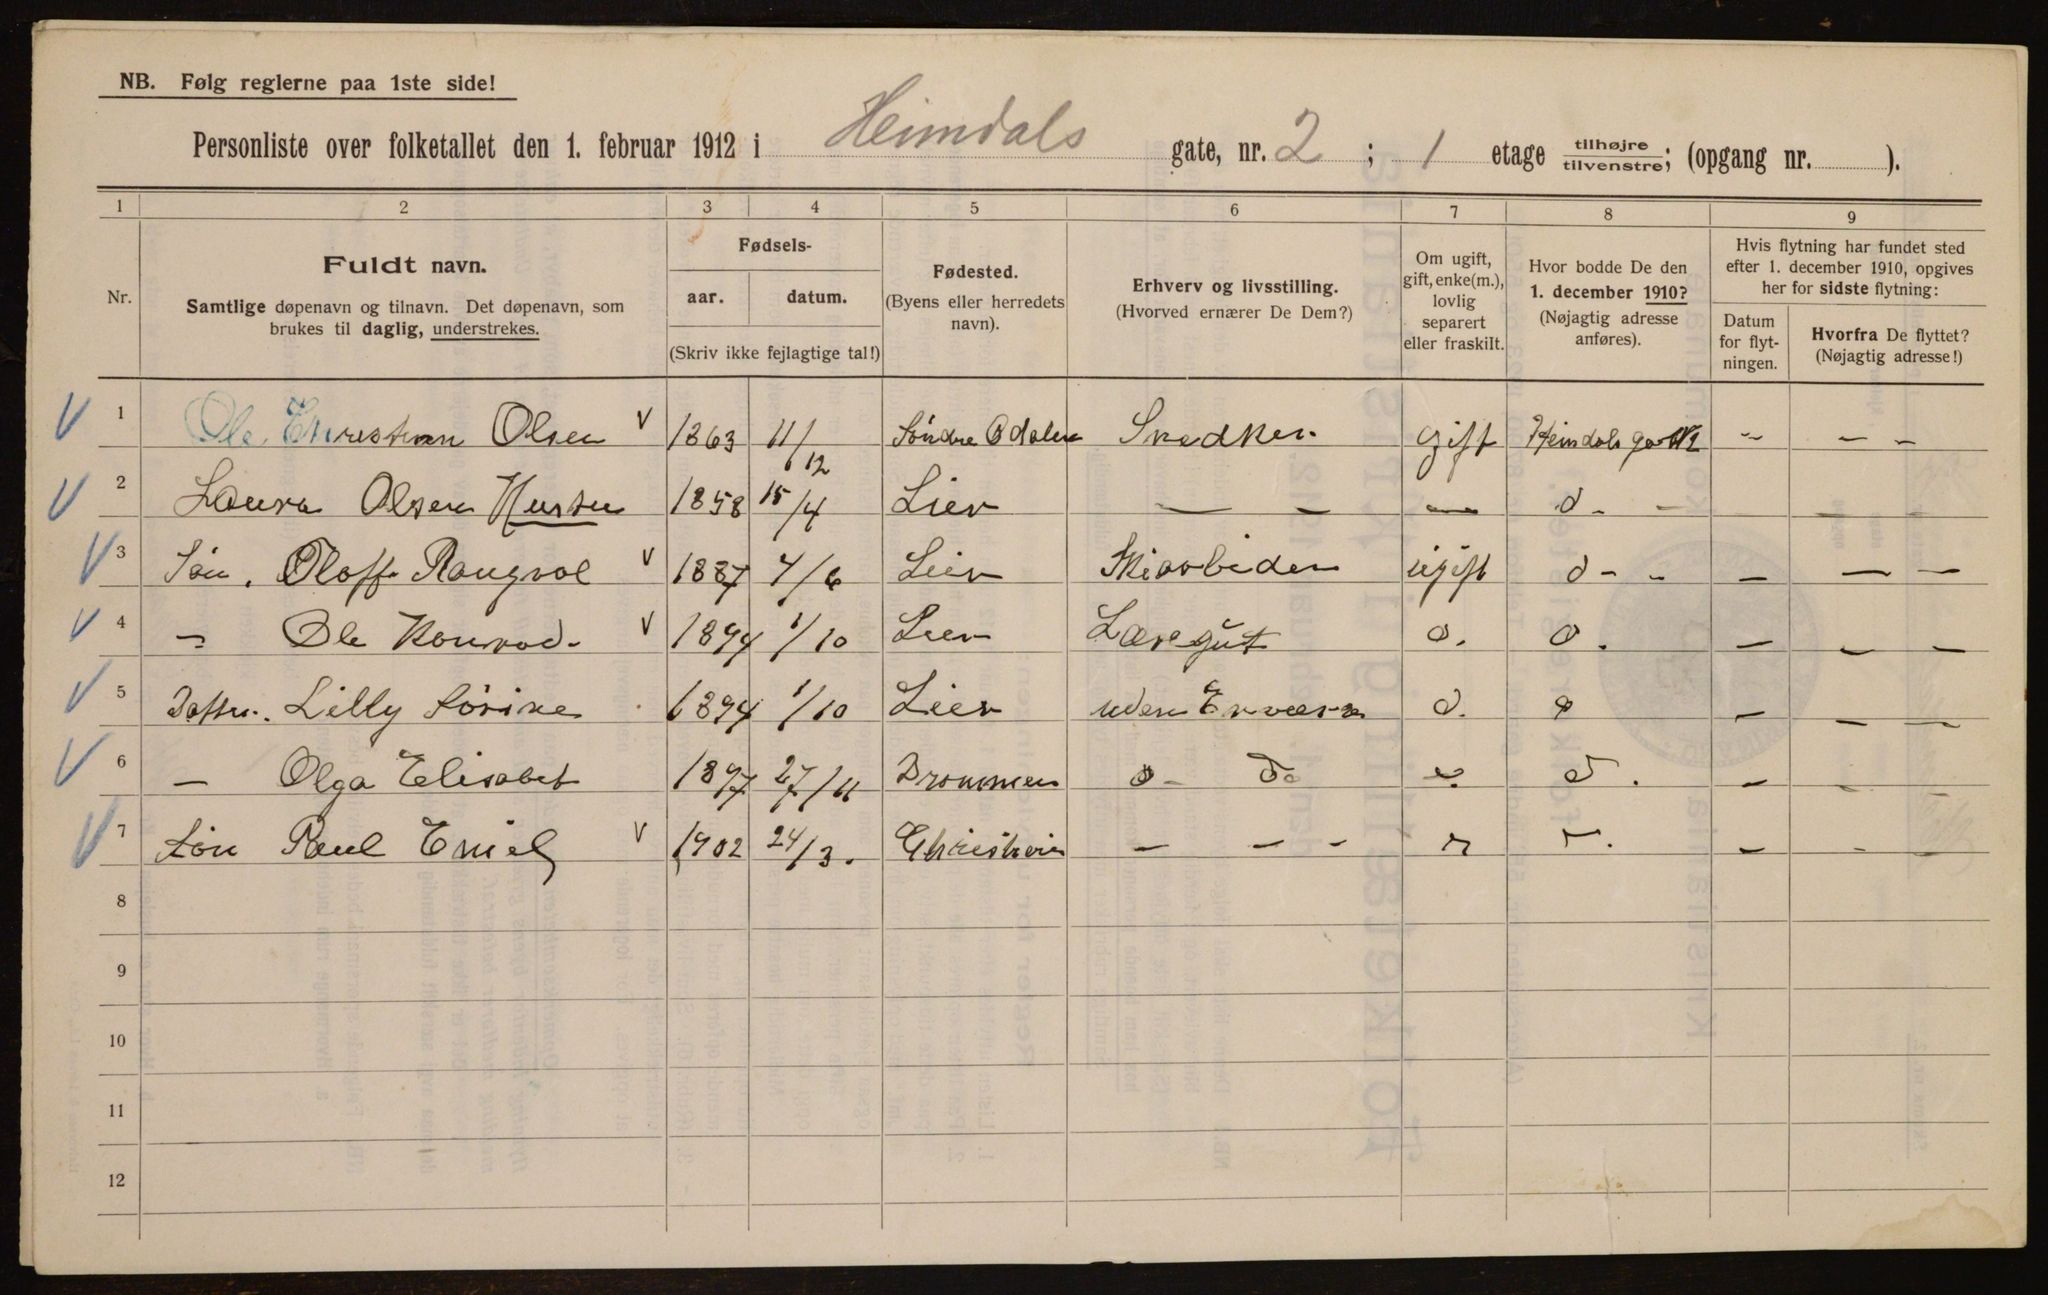 NB. Følg reglerne paa 1ste side!
Personliste over folketallet den 1. februar 1912 i Heimdals gate, nr. 2 ; 1 etage tilhøjre/tilvenstre; (opgang nr. ).
1 2 3 4 5 6 7 8 9
Nr.
Fuldt navn.
Samtlige døpenavn og tilnavn. Det døpenavn, som
brukes til daglig, understrekes.
Fødsels-
aar. datum.
(Skriv ikke fejlagtige tal!)
Fødested.
(Byens eller herredets
navn).
Erhverv og livsstilling.
(Hvorved ernærer De Dem?)
Om ugift,
gift, enke(m.),
lovlig
separert
eller fraskilt.
Hvor bodde De den
1. december 1910?
(Nøjagtig adresse
anføres).
Hvis flytning har fundet sted
efter 1. december 1910, opgives
her for sidste flytning:
Datum
for flyt-
ningen.
Hvorfra De flyttet?
(Nøjagtig adresse!)
1 Ole Christian Olsen V 1863 11/12 Søndre Odalen Snedker gift Heimdals " - -
2 Laura Olsen Hustru 1858 15/4 Lier — - — d. - - -
3 Søn. Oloff Rangvol V 1887 4/6 Lier ugift d - - - — -
4 - Ole Konrad. V 1894 1/10 Lier Læregut d. d. - - -
5 Datter. Lilly Sørine 1894 1/10 Lier uden d. d - - -
6 - Olga Elisabet 1897 27/11 Drammen d - do d. - - -
7 Søn Paul Emiel V 1902 24/3. Christiania - - - - - -
8
9
10
11
12